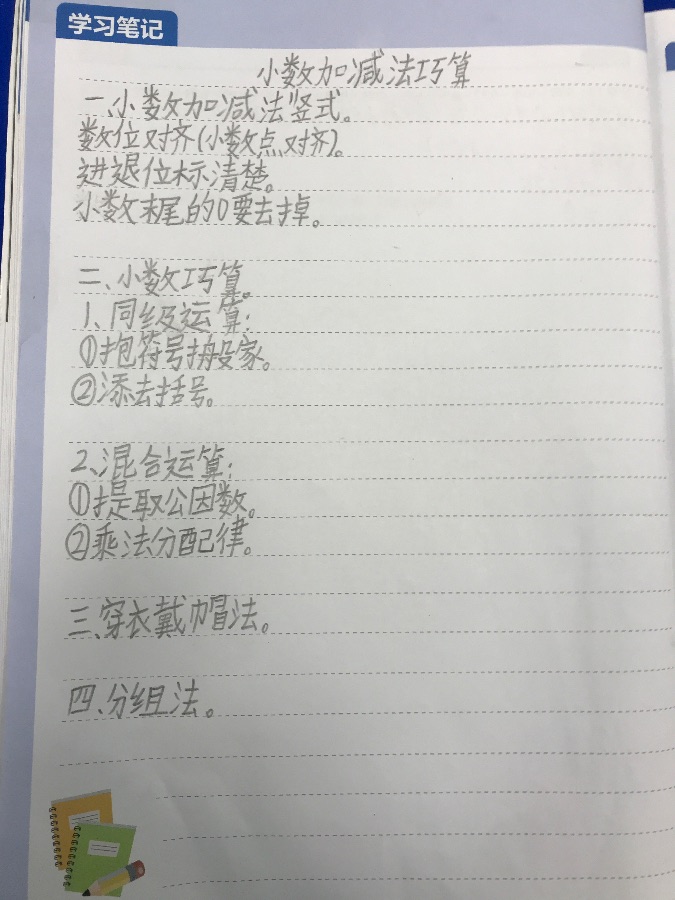 学习笔记
小数加减法巧算
一、小数加减法竖式。
数位对齐(小数点对齐)。
进退位标示清楚。
小数末尾的0要去掉。
二、小数巧算。
1、同级运算:
①抱符号搬家。
②添去括号。
2、混合运算:
①提取公因数。
②乘法分配律。
三、穿衣戴帽法。
四、分组法。